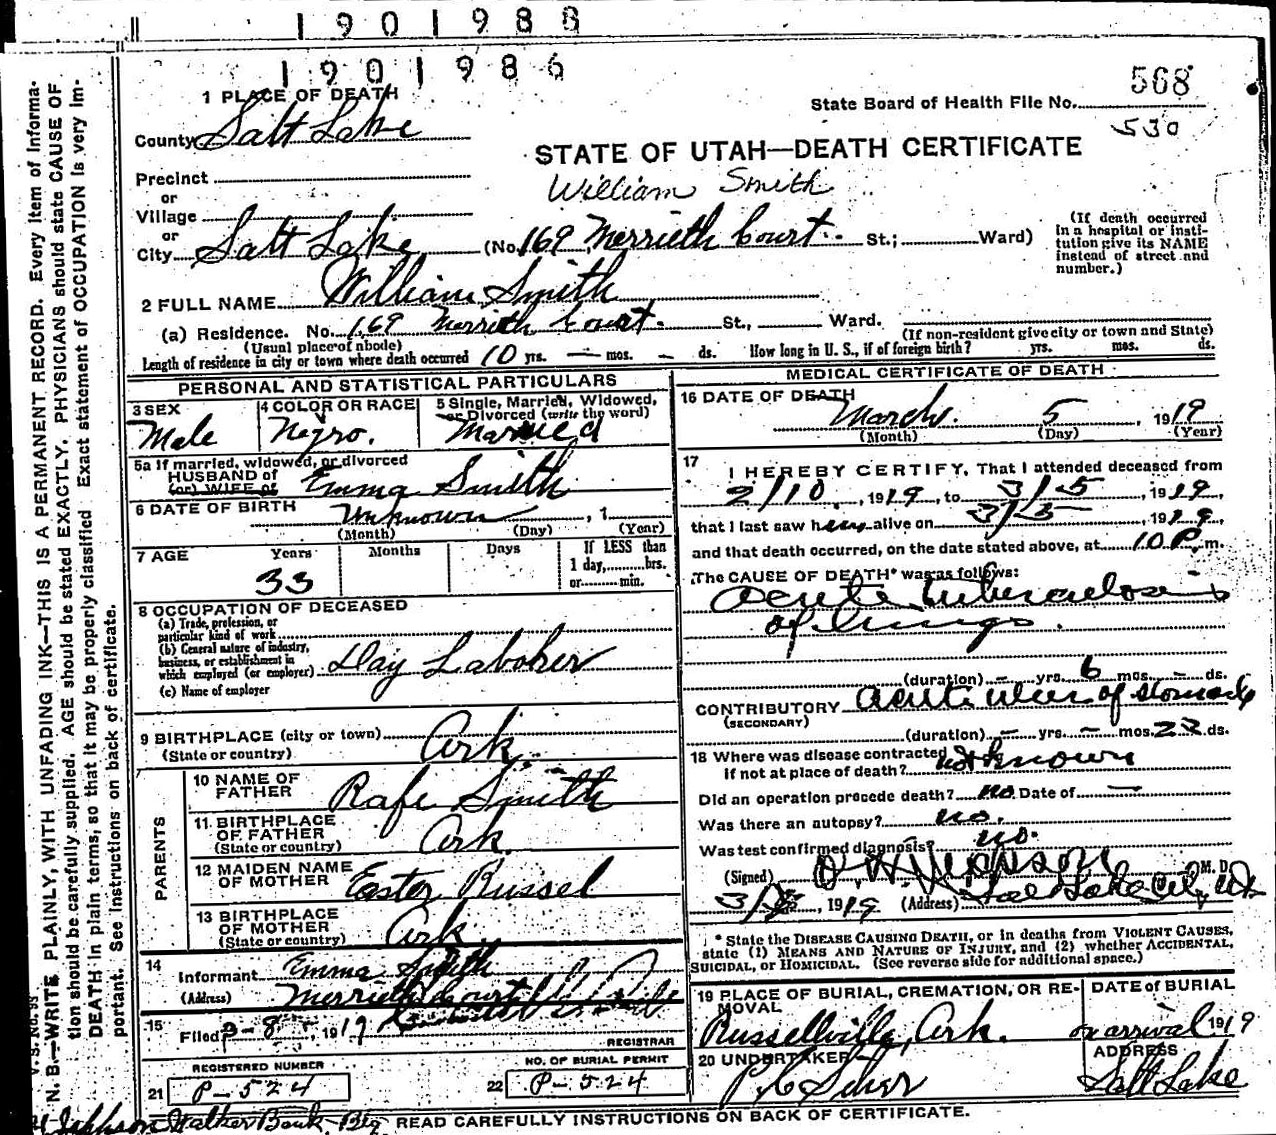 1901988
1901986
568
1 PLACE OF DEATH
State Board of Health File No.
530
County Salt Lake
STATE OF UTAH—DEATH CERTIFICATE
Precinct
William Smith
or
Village
or
City Salt Lake (No. 169 Merrieth Court. St.; Ward)
(If death occurred in a hospital or institution give its NAME instead of street and number.)
2 FULL NAME William Smith
(a) Residence. No. 169 Merrieth Court. St., Ward.
(Usual place of abode) (If non-resident give city or town and State)
Length of residence in city or town where death occurred 10 yrs. — mos. — ds. How long in U. S., if of foreign birth? yrs. mos. ds.
PERSONAL AND STATISTICAL PARTICULARS
3 SEX
Male
4 COLOR OR RACE
Negro.
5 Single, Married, Widowed,
or Divorced (write the word)
Married
5a If married, widowed, or divorced
HUSBAND of
(or) WIFE of Emma Smith
6 DATE OF BIRTH Unknown , 1
(Month) (Day) (Year)
7 AGE Years Months Days If LESS than
1 day, hrs.
or min.
33
8 OCCUPATION OF DECEASED
(a) Trade, profession, or
particular kind of work
(b) General nature of industry,
business, or establishment in
which employed (or employer) Day Laborer
(c) Name of employer
9 BIRTHPLACE (city or town)
(State or country) Ark.
PARENTS
10 NAME OF
FATHER Rafe Smith
11 BIRTHPLACE
OF FATHER
(State or country) Ark.
12 MAIDEN NAME
OF MOTHER Easter Russel
13 BIRTHPLACE
OF MOTHER
(State or country) Ark.
14
Informant Emma Smith
(Address) Merrieth Court
15
Filed 3-8, 1919
REGISTRAR
REGISTERED NUMBER
21 P-524
NO. OF BURIAL PERMIT
22 P-524
MEDICAL CERTIFICATE OF DEATH
16 DATE OF DEATH
March. 5, 1919
(Month) (Day) (Year)
17
I HEREBY CERTIFY, That I attended deceased from
2/10, 1919, to 3/5, 1919,
that I last saw him alive on 3/5, 1919,
and that death occurred, on the date stated above, at 10 P. m.
The CAUSE OF DEATH* was as follows:
Acute tuberculosis
of lungs.
(duration) — yrs. 6 mos. — ds.
CONTRIBUTORY Acute ulcer of stomach
(SECONDARY)
(duration) — yrs. — mos. 23 ds.
18 Where was disease contracted
if not at place of death? not known
Did an operation precede death? no. Date of —
Was there an autopsy? no.
Was test confirmed diagnosis? no.
(Signed) M. D.
3/ , 1919 (Address) Salt Lake City, Ut
* State the DISEASE CAUSING DEATH, or in deaths from VIOLENT CAUSES,
state (1) MEANS AND NATURE OF INJURY, and (2) whether ACCIDENTAL,
SUICIDAL, or HOMICIDAL. (See reverse side for additional space.)
19 PLACE OF BURIAL, CREMATION, OR RE-
MOVAL
Russellville, Ark.
DATE of BURIAL
on arrival 1919
20 UNDERTAKER
ADDRESS
Salt Lake
Walker Bank Blg READ CAREFULLY INSTRUCTIONS ON BACK OF CERTIFICATE.
V. S. No. 99
N. B.—WRITE PLAINLY, WITH UNFADING INK—THIS IS A PERMANENT RECORD. Every item of informa-
tion should be carefully supplied. AGE should be stated EXACTLY. PHYSICIANS should state CAUSE OF
DEATH in plain terms, so that it may be properly classified. Exact statement of OCCUPATION is very im-
portant. See instructions on back of certificate.